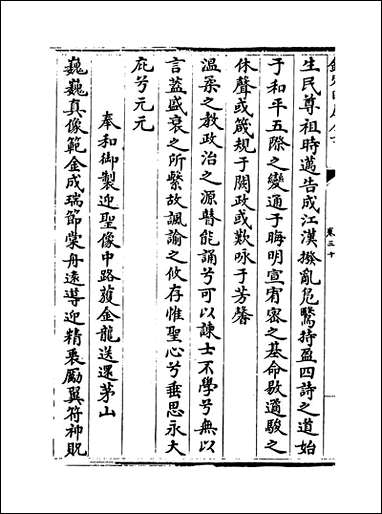 生民尊祖時邁告成江漢撥亂鳧鷖持盈四詩之道始
于和平五際之變通于晦明宣宥宻之基命敭遹駿之
休聲或箴規于闕政或歎咏于芳馨
温柔之教政治之源瞽能誦兮可以諫士不學兮無以
言葢盛衰之所繫故諷諭之攸存惟聖心兮垂思永大
庇兮元元
奉和御製迎聖像中路獲金龍送還茅山
巍巍真像範金成瑞節棠舟遠導迎精衷勵翼符神貺
卷三十